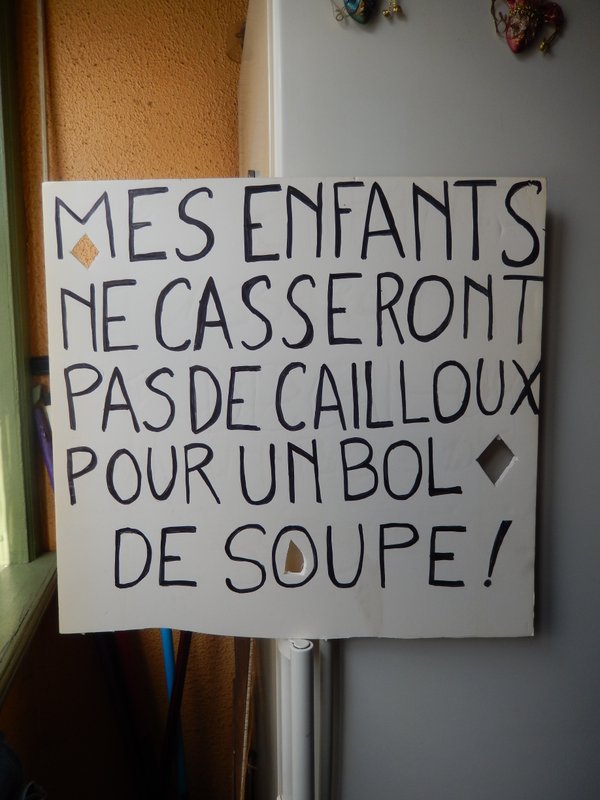 MES ENFANTS
NE CASSERONT
PAS DE CAILLOUX
POUR UN BOL
DE SOUPE !